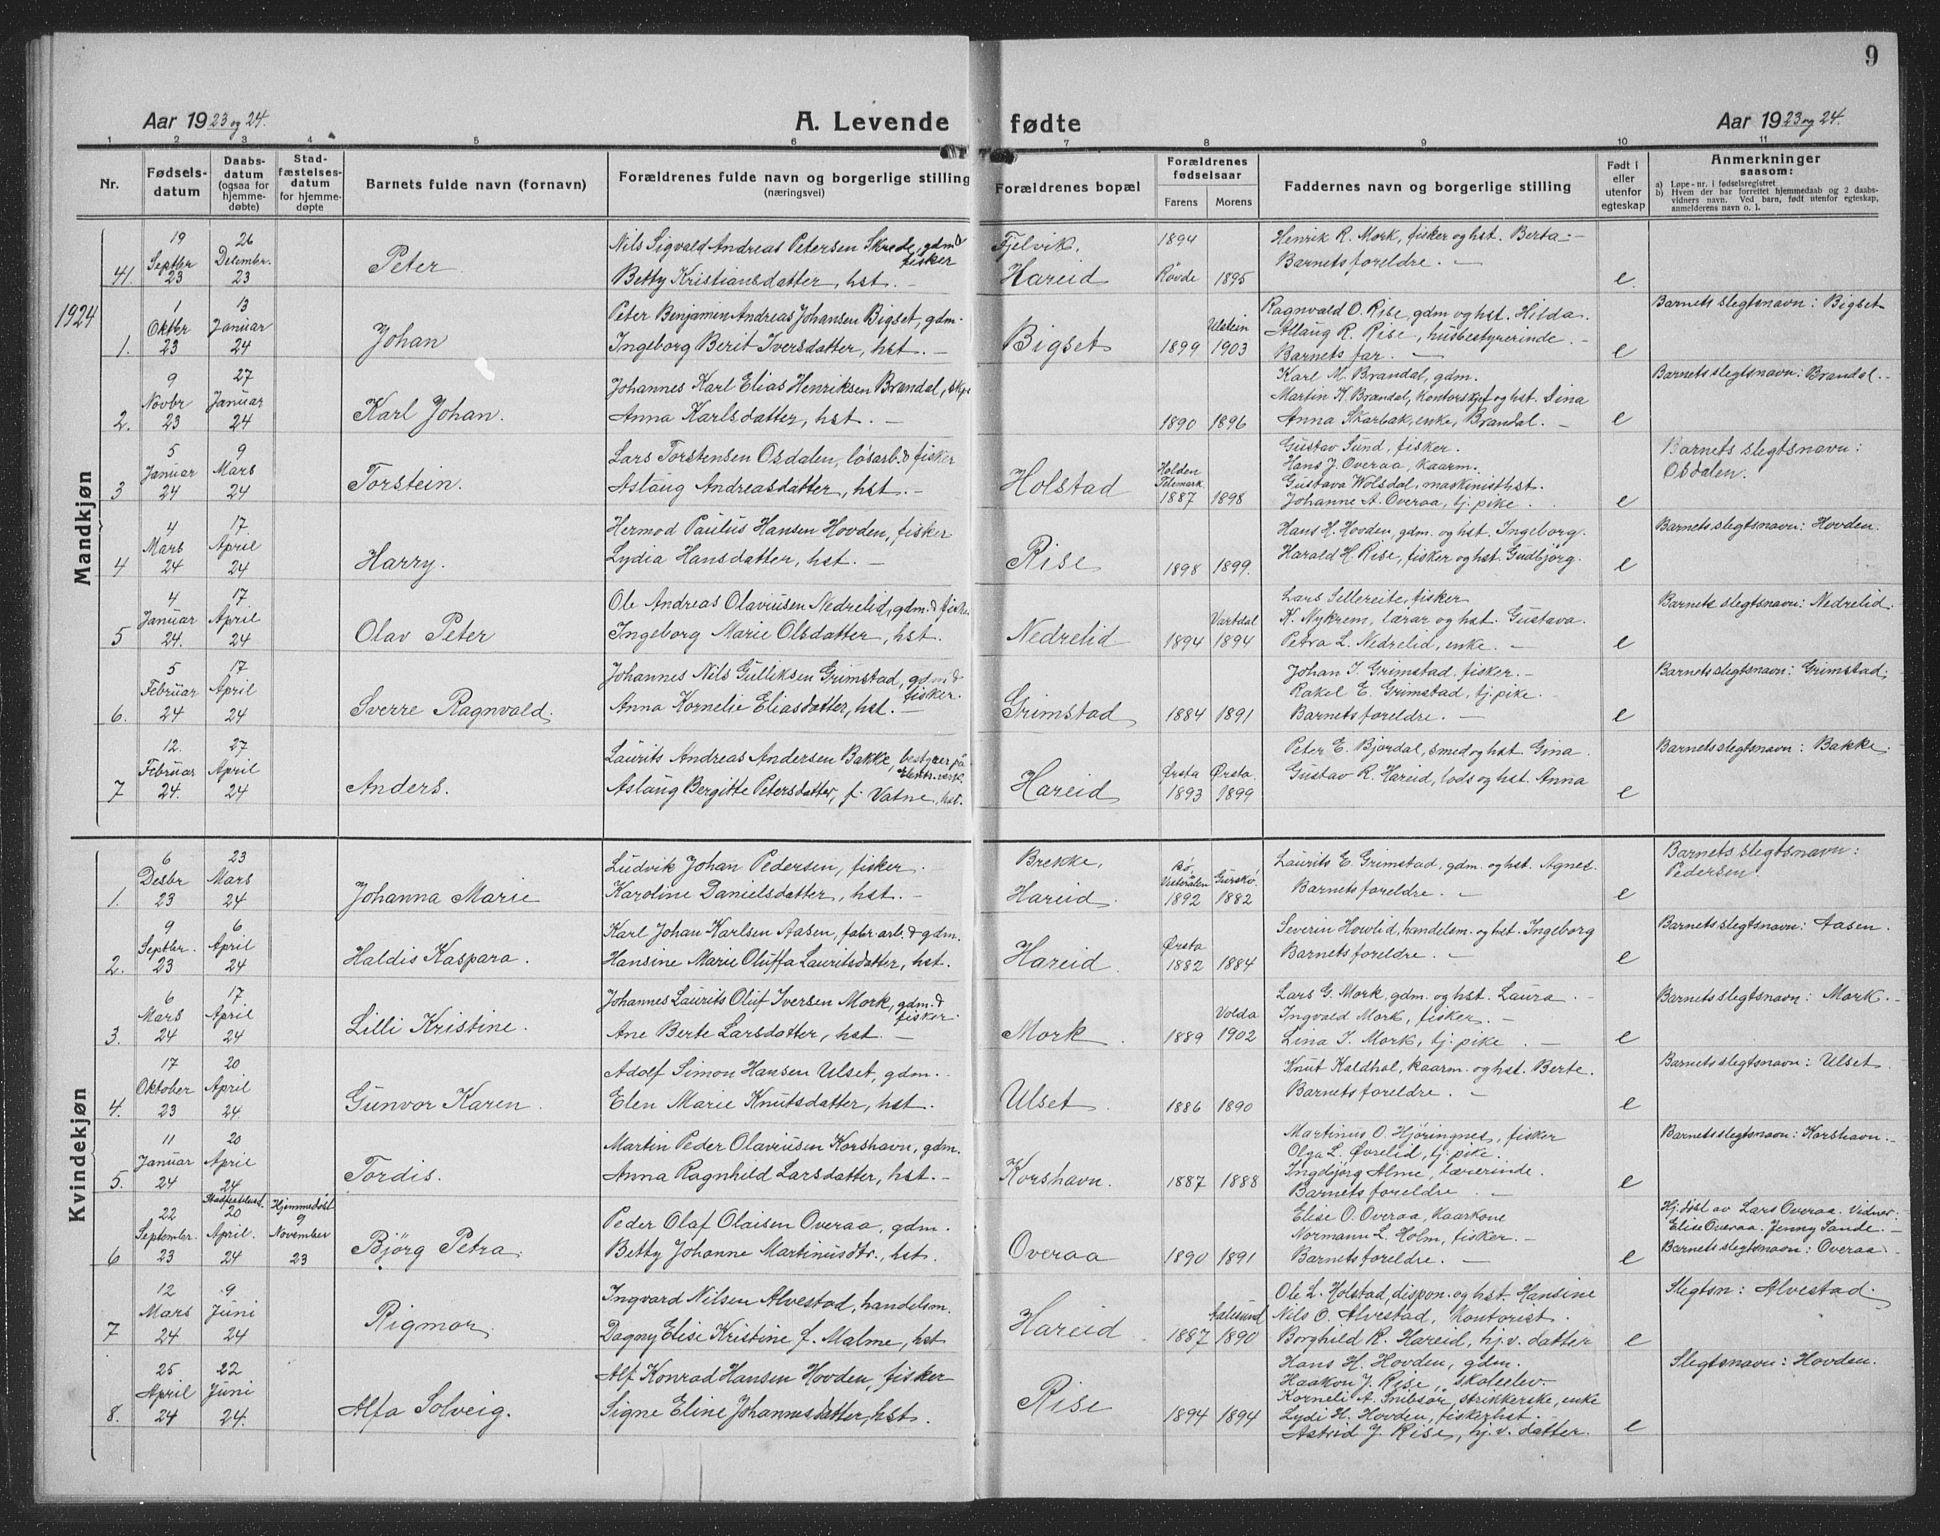 9
Aar 1923 og 24.
A. Levende fødte
Aar 1923 og 24.
1 2 3 4 5 6 7 8 9 10 11
Nr.
Fødsels-
datum
Daabs-
datum
(ogsaa for
hjemme-
døbte)
Stad-
fæstelses-
datum
for hjemme-
døpte
Barnets fulde navn (fornavn)
Forældrenes fulde navn og borgerlige stilling
(næringsvei)
Forældrenes bopæl
Forældrenes
fødselsaar
Farens Morens
Faddernes navn og borgerlige stilling
Født i
eller
utenfor
egteskap
Anmerkninger
saasom:
a) Løpe-nr. i fødselsregistret
b) Hvem der har forrettet hjemmedaab og 2 daabs-
vidners navn. Ved barn, født utenfor egteskap,
anmelderens navn o. l.
Mandkjøn
41. 19 Septbr 23
26 Decembr. 23
Peter
Nils Sigvald Andreas Petersen Skrede, gdm &
fisker
Betty Kristiansdatter, hst. —
Fjelvik.
Hareid
1894
Røvde 1895
Henrik R. Mork, fisker og hst. Berta. —
Barnets foreldre. —
e.
1924
1. 1 Oktbr 23
13 Januar 24
Johan
Peter Benjamin Andreas Johansen Bigset, gdm.
Ingeborg Berit Iversdatter, hst. —
Bigset
1899 Ulstein 1903
Ragnvald O. Rise, gdm og hst. Hilda.
Allaug R. Rise, husbestyrerinde. —
Barnets far. —
e
Barnets slegtsnavn: Bigset
2. 9 Novbr 23
27 Januar 24
Karl Johan.
Johannes Karl Elias Henriksen Brandal,
Anna Karlsdatter, hst. —
1890 1896
Karl M. Brandal, gdm.
Martin K. Brandal, kontorskjef og hst. Sina
Anna Skarbak, enke, Brandal. —
e
Barnets slegtsnavn: Brandal. —
3 5 Januar 24
9 Mars 24
Torstein.
Lars Torstensen Osdalen, løsarb. & fisker
Aslaug Andreasdatter, hst. —
Holstad
Holden
Telemark
1887 1898
Gustav Sund, fisker.
Hans J. Overaa, kaarm.
Gustava Wolsdal, maskinisthst.
Johanne A. Overaa, tj. pike. —
e
Barnets slegtsnavn:
Osdalen.
4 4 Mars 24
17. April 24
Harry.
Hermod Paulus Hansen Hovden, fisker
Lydia Hansdatter, hst. —
Rise
1898 1899.
Hans H. Hovden, gdm. og hst. Ingeborg.
Harald H. Rise, fisker og hst. Gudbjörg.
e
Barnets slegtsnavn: Hovden.
5 4 Januar 24.
17 April 24
Olav Peter
Ole Andreas Olaviusen Nedrelid, gdm. & fisker
Ingeborg Marie Olsdatter, hst.
Nedrelid
1894 Vartdal 1894
Lars Sellereite, fisker
K. Nykrem, lærar og hst. Gustava.
Petra L. Nedrelid, enke. —
e
Barnets slegtsnavn: Nedrelid.
6. 5 Februar 24
17 April 24
Sverre Ragnvald.
Johannes Nils Gulliksen Grimstad, gdm &
fisker.
Anna Kornelie Eliasdatter, hst. —
Grimstad
1884 1891
Johan I. Grimstad, fisker. —
Rakel E. Grimstad, tj. pike.
Barnets foreldre. —
e
Barnets slegtsnavn: Grimstad.
7 12. Februar 24.
27 April 24
Anders.
Laurits Andreas Andersen Bakke, bestyrer på
Elektr. verk
Aslaug Bergitte Petersdatter, f. Vatne, hst.
Hareid
Ørsta 1893 Ørsta 1899
Peter E. Bjørdal, smed og hst. Gina.
Gustav R. Hareid, lods og hst. Anna
e
Barnets slegtsnavn: Bakke.
Kvindekjøn
1. 6 Desbr 23
23 Mars 24
Johanna Marie
Ludvik Johan Pedersen, fisker. —
Karoline Danielsdatter, hst. —
Brekke,
Hareid.
Bø,
Vesterålen
1892 Gurskø. 1882
Laurits E. Grimstad, gdm. og hst. Agnes.
Barnets foreldre. —
e
Barnets slegtsnavn:
Pedersen
2. 9 Septbr. 23
6 April 24
Haldis Kaspara.
Karl Johan Karlsen Aasen, fabr. arb. & gdm.
Hansine Marie Oluffa Lauritsdatter, hst.
Hareid
Ørsta
1882 1884
Severin Howlid, handelsm. og hst. Ingeborg
Barnets foreldre. —
e
Barnets slegtsnavn: Aasen.
3. 6 Mars 24
17 April 24
Lilli Kristine.
Johannes Laurits Oluf Iversen Mork, gdm. &
fisker.
Ane Berte Larsdatter, hst. —
Mork
1889 Volda 1902
Lars G. Mork, gdm. og hst. Laura. —
Ingvald Mork, fisker. —
Lina I. Mork, tj. pike. —
e
Barnets slegtsnavn: Mork. —
4. 17 Oktober 23
20 April 24
Gunvor Karen.
Adolf Simon Hansen Ulset, gdm. —
Elen Marie Knutsdatter, hst.
Ulset.
1886 1890
Knut Kaldhol, kaarm. og hst. Berte.
Barnets foreldre. —
e
Barnets slegtsnavn: Ulset.
5. 11 Januar 24
20 April 24
Tordis.
Martin Peder Olaviusen Korshavn, gdm.
Anna Ragnhild Larsdatter, hst. —
Korshavn.
1887 1888
Martinus O. Hjöringnes, fisker
Olga L. Øvrelid, tj. pike.
Ingebjörg Alme, lærerinde.
Barnets foreldre. —
e
Barnets slegtsnavn: Korshavn. —
6 22 Septembr. 23
20 April. 24
Hjemmedøbt
9 November 23
Bjørg Petra.
Peder Olaf Olaisen Overaa, gdm.
Betty Johanne Martinusdtr., hst.
Overaa
1890 1891
Elise O. Overaa, kaarkone
Normann L. Holm, fisker. —
Barnets foreldre. —
e
Hj. døbt av Lars Overaa. Vidner:
Elise Overaa. Jenny Sande. —
Barnets slegtsnavn: Overaa
7 12 Mars 24
9 Juni 24
Rigmor.
Ingvard Nilsen Alvestad, handelsm.
Dagny Elise Kristine f. Malme, hst
Hareid
1887 Aalesund 1890
Ole L. Holstad, dispon. og hst. Hansine
Nils O. Alvestad, kontorist.
Borghild R. Hareid, hj. v. datter
e
Slegtsn: Alvestad.
8. 25 April 24
22 Juni 24.
Alfa Solveig.
Alf Konrad Hansen Hovden, fisker
Signe Eline Johannesdatter, hst.
Rise
1894 1894
Hans H. Hovden, gdm.
Haakon J. Rise, skoleelev.
Korneli A. Snibsør, strikkerske, enke
Lydi H. Hovden, fiskerhst.
Astrid J. Rise, hj. v. datter.
e
Slegtsnavn: Hovden.